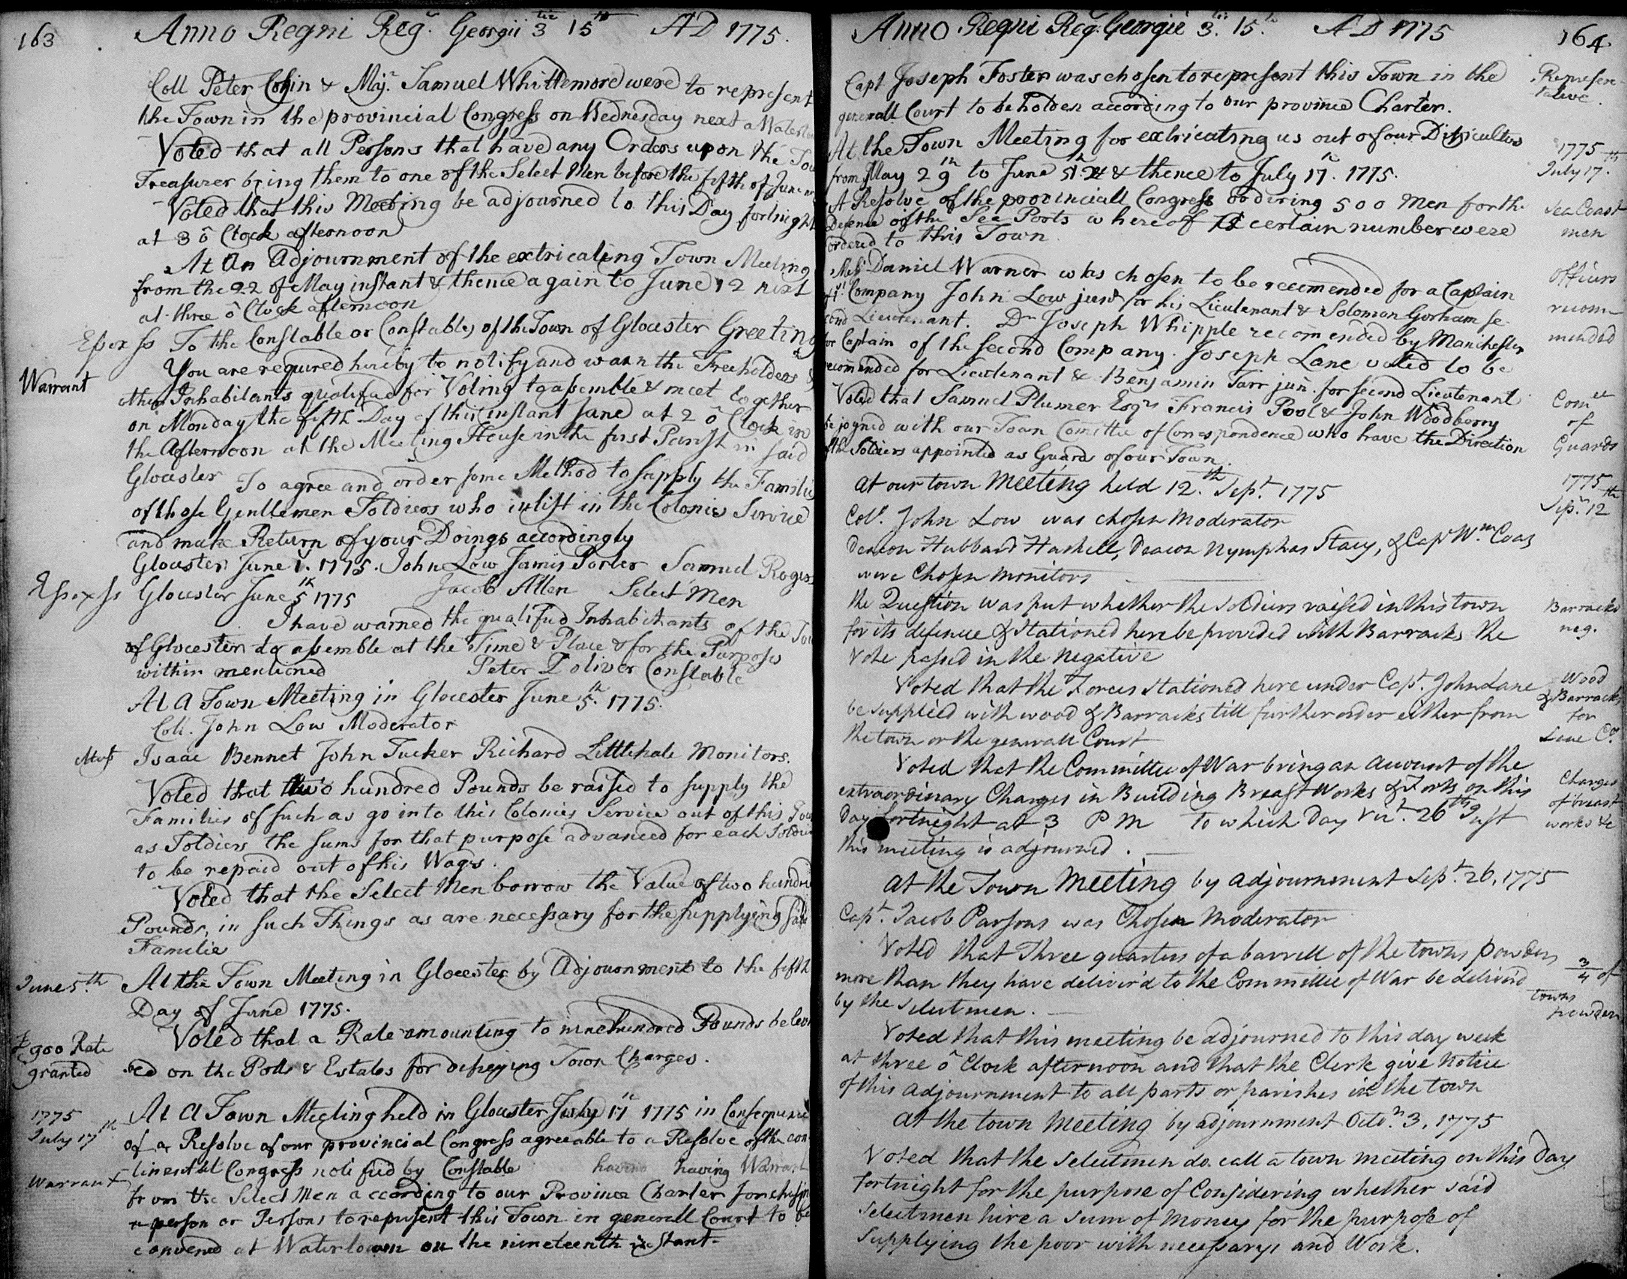 163
Anno Regni Reg.s Georgii 3 tie 15 th AD 1775.
Coll Peter Coffin & Maj.r Samuel Whittemore were to represent
the Town in the provincial Congress on Wednesday next a Water
Voted that all Persons that have any Orders upon the Tow
Treasurer bring them to one of the Select Men before the fifth of June
Voted that this Meeting be adjourned to this Day fortnight
at 3 o Clock afternoon
At An Adjournment of the extricating Town Meeting
from the 22 of May instant & thence again to June 12 next
at three o Clock afternoon
Essex ss To the Constable or Constables of the Town of Glocester Greeting
You are required hereby to notify and warn the Freeholders &
Warrant
other Inhabitants qualified for Voting to assemble & meet together
on Monday the fifth Day of this instant June at 2 o Clock in
the Afternoon at the Meeting House in the first Parish in said
Glocester To agree and order some Method to supply the Familie
of those Gentlemen Soldiers who inlist in the Colonies Service
and make Return of your Doings accordingly
Glocester June 1. 1775. John Low James Porter Samuel Rogers
Jacob Allen Select Men
Essex ss Glocester June 5 th 1775
I have warned the qualified Inhabitants of the Tow
of Glocester to assemble at the Time & Place & for the Purposes
within mentioned Peter Doliver Constable
At A Town Meeting in Glocester June 5.th 1775.
Coll. John Low Moderator
Isaac Bennet John Tucker Richard Littlehale Monitors.
Voted that two hundred Pounds be raised to supply the
Families of such as go into this Colonies Service out of this Tow
as Soldiers the sums for that purpose advanced for each Soldier
to be repaid out of his Wages.
Voted that the Select Men borrow the Value of two hundred
Pounds, in such Things as are necessary for the supplying said
Families
June 5.th
At the Town Meeting in Glocester by Adjournment to the fifth
Day of June 1775.
Voted that a Rate amounting to nine hundred Pounds be levi
£ 900 Rate
granted
ed on the Polls & Estates for defraying Town Charges.
1775
July 17 th
At A Town Meeting held in Glocester July 17 th 1775 in Consequence
of a Resolve of our provincial Congress agreeable to a Resolve of the con
tinental Congress notified by Constable having having Warrant
Warrant
from the Select Men according to our Province Charter for chusin
a person or Persons to represent this Town in generall Court to be
convened at Watertown on the nineteenth instant.
Anno Regni Reg.s Georgii 3.tii 15.to AD 1775
164
Capt Joseph Foster was chosen to represent this Town in the
generall Court to be holden according to our province Charter.
Represen
tative.
At the Town Meeting for extricating us out of our Difficulties
from May 29 th to June & thence to July 17.th 1775.
1775
July 17.th
A Resolve of the provinciall Congress ordering 500 Men for the
Defence of the Sea Ports whereof a certain number were
ordered to this Town
Sea Coast
men
Daniel Warner was chosen to be recomended for a Captain
Company John Low jun.r for his Lieutenant & Solomon Gorham se
cond Lieutenant. Dr Joseph Whipple recomended by Manchester
for Captain of the second Company. Joseph Lane voted to be
recomended for Lieutenant & Benjamin Tarr jun.r for second Lieutenant
officers
recom
mended
Voted that Samuel Plumer Esq.r Francis Pool & John Woodberry
be joyned with our Town Comittee of Correspondence who have the Direction
of the Soldiers appointed as Guards of our Town.
Com.ee
of
Guards
at our town Meeting held 12.th Sept. 1775
1775
Sep.r 12 th
Col.o John Low was chosen Moderator
Deacon Hubbard Haskell, Deacon Nymphas Stacy, & Cap.t W.m Coas
were Chosen Monitors
the Question was put whether the soldiers raised in this town
for its defence & Stationed here be provided with Barracks the
Vote passed in the Negative
Barracks
neg.
Voted that the Forces stationed here under Cap.t John Lane
be supplied with wood & Barracks till further order either from
the town or the generall Court
Wood
& Barracks
for
Lane Co.
Voted that the Committee of War bring an account of the
extraordinary Charges in Building Breast Works & Forts on this
Day fortnight at 3 P M to which Day viz.t 26 th Inst
this meeting is adjourned.
Charges
of breast
works &c
at the Town Meeting by adjournment Sept. 26, 1775
Cap.t Jacob Parsons was Chosen Moderator
Voted that Three quarters of a barrell of the towns powder
more than they have deliver'd to the Committee of War be deliver'd
by the Selectmen.
3/4 of
towns
powder
Voted that this meeting be adjourned to this day week
at three o Clock afternoon and that the Clerk give Notice
of this adjournment to all parts or parishes in the town
at the town Meeting by adjournment Octo.r 3, 1775
Voted that the Selectmen do call a town meeting on this Day
fortnight for the purpose of Considering whether said
Selectmen hire a sum of Money for the purpose of
Supplying the poor with necessarys and Work.